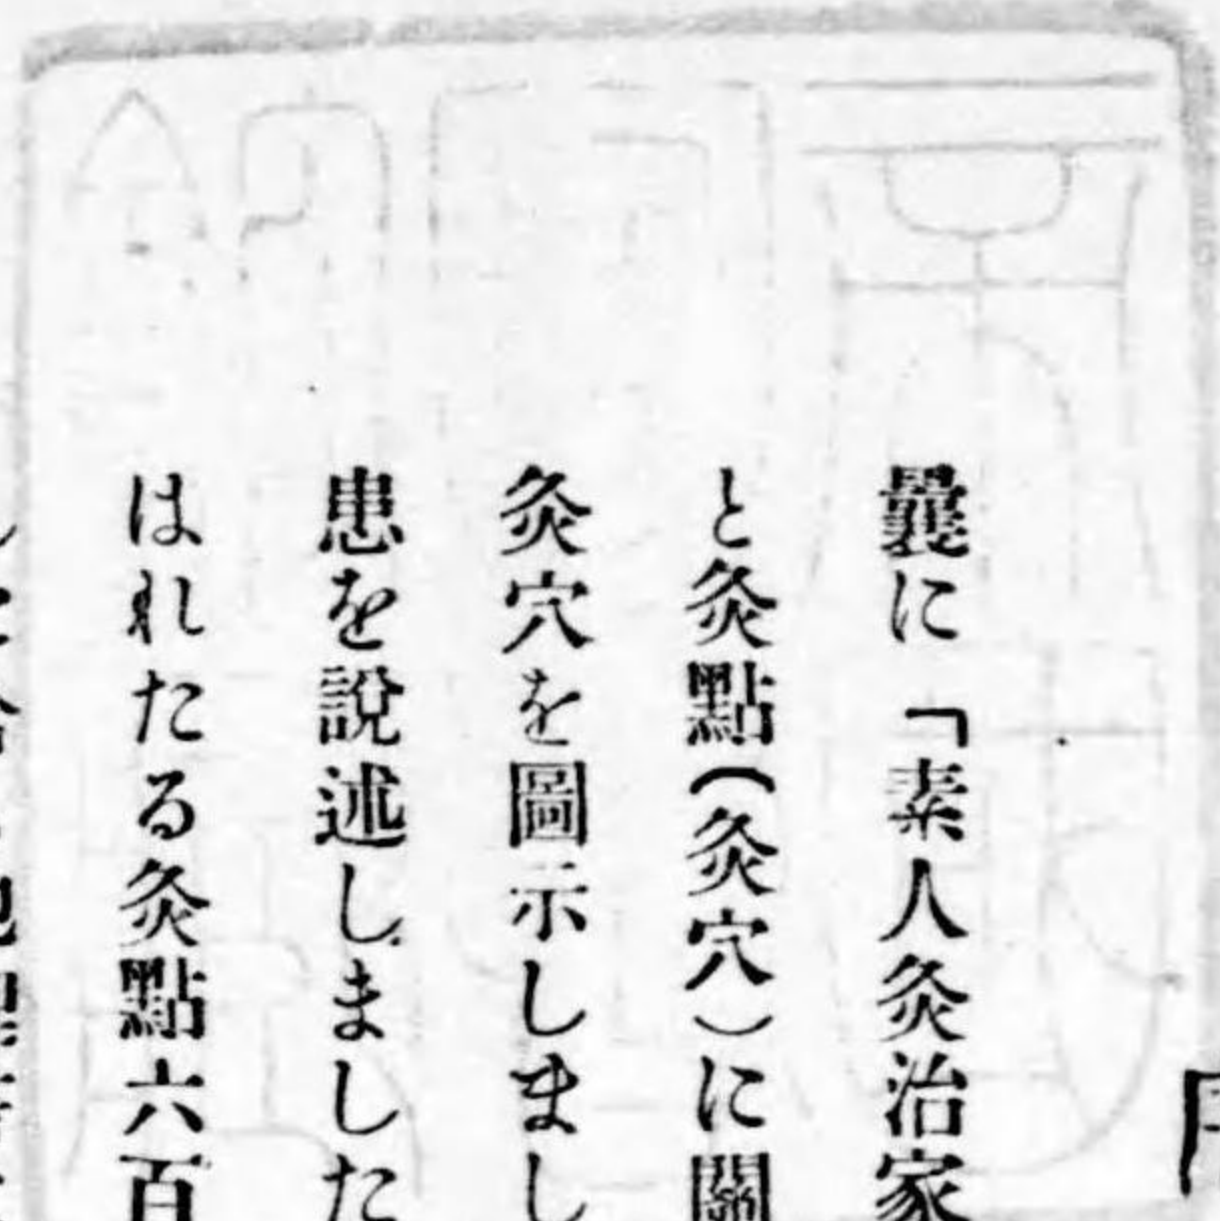 曩に「素人灸治家
と灸點(灸穴)に關
灸穴を圖示しまし
患を説述しました
はれたる灸點六百